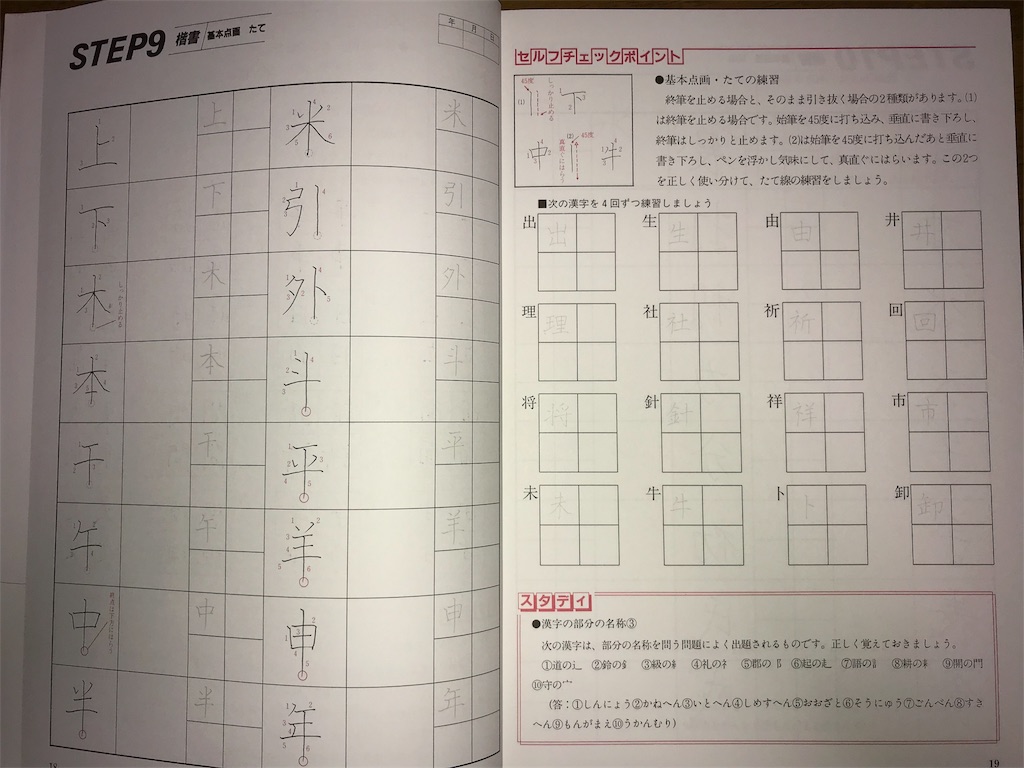 STEP9 楷書 基本点画 たて
年 月 日
上 上 米 米
下 下 引 引
木 しっかり止める 木 外 外
本 本 斗 斗
干 干 平 平
午 午 羊 羊
中 中 申 申
半 半 年 年
18
セルフチェックポイント
45度
(1)
しっかり止める
下
中
(2)
45度
真直ぐにはらう
井
●基本点画・たての練習
終筆を止める場合と、そのまま引き抜く場合の2種類があります。(1)
は終筆を止める場合です。始筆を45度に打ち込み、垂直に書き下ろし、
終筆はしっかりと止めます。(2)は始筆を45度に打ち込んだあと垂直に
書き下ろし、ペンを浮かし気味にして、真直ぐにはらいます。この2つ
を正しく使い分けて、たて線の練習をしましょう。
■次の漢字を4回ずつ練習しましょう
出 出 生 生 由 由 井 井
理 理 社 社 祈 祈 回 回
将 将 針 針 祥 祥 市 市
未 未 牛 牛 卜 卜 卸 卸
スタディ
●漢字の部分の名称③
次の漢字は、部分の名称を問う問題によく出題されるものです。正しく覚えておきましょう。
①道の⻌ ②鈴の釒 ③級の糹 ④礼の礻 ⑤郡の⻏ ⑥起の走 ⑦語の訁 ⑧耕の耒 ⑨開の門
⑩守の宀
(答：①しんにょう②かねへん③いとへん④しめすへん⑤おおざと⑥そうにゅう⑦ごんべん⑧すき
へん⑨もんがまえ⑩うかんむり)
19